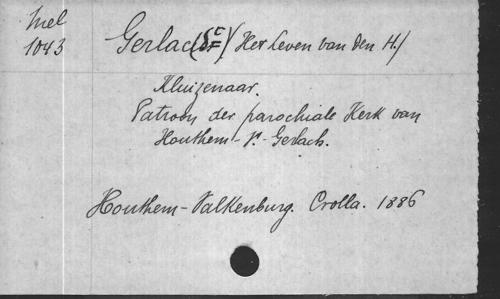 Mel
1043
Gerlac (S.) (Het Leven van den H.)
Kluizenaar.
Patroon der parochiale Kerk van
Houthem-St-Gerlach.
Houthem-Valkenburg. Crolla. 1886